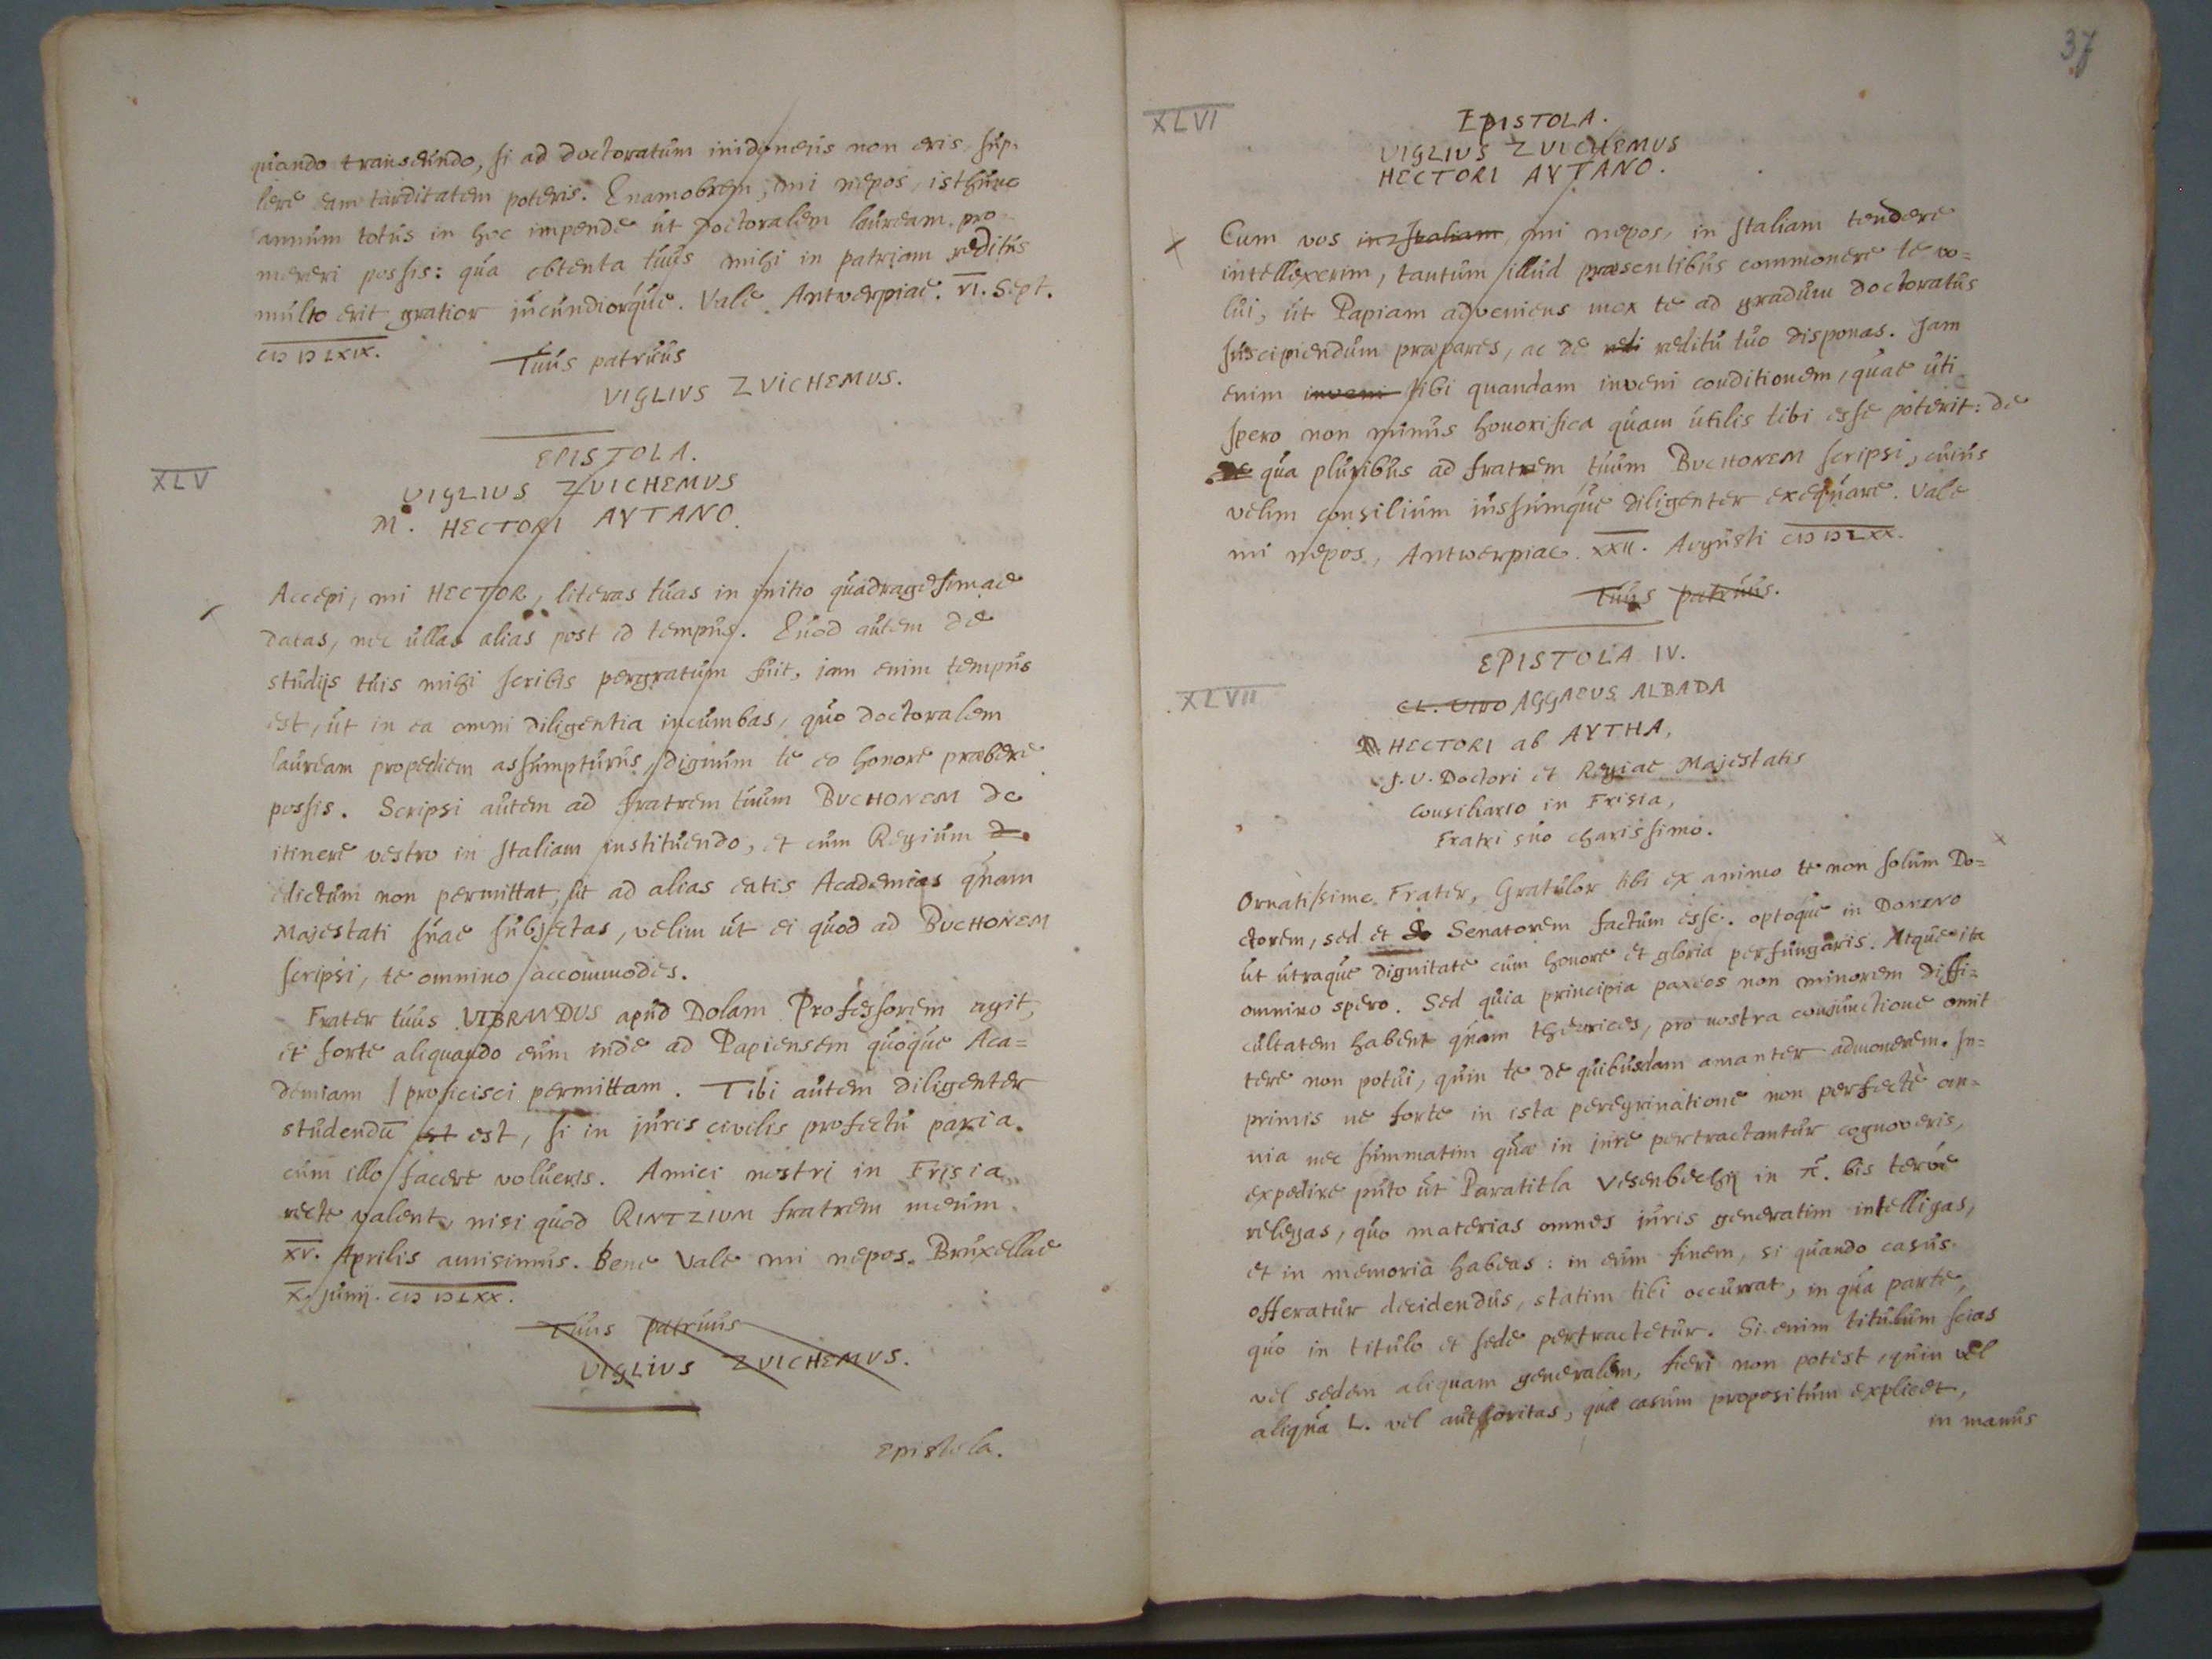 quando transeundo, si ad doctoratum inidoneus non eris, sup-
lere eam tarditatem poteris. Quamobrem, mi nepos, isthunc
annum totus in hoc impende ut Doctoralem lauream pro-
mereri possis: qua obtenta tuus mihi in patriam reditus
multo erit gratior jucundiorque. Vale. Antverpiae. VI. Sept.
CIƆ IƆ LXIX.
Tuus patruus
VIGLIUS ZVICHEMUS.
XLV
EPISTOLA.
VIGLIUS ZVICHEMUS
M. HECTORI AYTANO.
Accepi, mi HECTOR, literas tuas in initio quadragesimae
datas, nec ullas alias post id tempus. Quod autem de
studijs tuis mihi scribis pergratum fuit, iam enim tempus
est, ut in ea omni diligentia incumbas, quo doctoralem
lauream propediem assumpturus, dignum te eo honore præbere
possis. Scripsi autem ad fratrem tuum BUCHONEM de
itinere vestro in Italiam instituendo, et cum Regium
edictum non permittat, ut ad alias eatis Academias quam
Majestati suae subjectas, velim ut ei quod ad BUCHONEM
scripsi, te omnino accommodes.
Frater tuus VIBRANDUS apud Dolam Professorem agit,
et forte aliquando eum inde ad Papiensem quoque Aca=
demiam proficisci permittam. Tibi autem diligenter
studendū est est, si in juris civilis profectu paria
cum illo facere volueris. Amici nostri in Frisia
recte valent, nisi quod RINTZIUM fratrem meum
XV. Aprilis amisimus. Bene Vale mi nepos. Bruxellae
X. junij. CIƆ IƆ LXX.
Tuus patruus
VIGLIUS ZVICHEMUS.
Epistola.
37
XLVI
EPISTOLA.
VIGLIUS ZVICHEMUS
HECTORI AYTANO.
Cum vos in Italiam, mi nepos, in Italiam tendere
intellexerim, tantum illud præsentibus commonere te vo=
lui, ut Papiam adveniens mox te ad gradum doctoratus
suscipiendum præpares, ac de redi reditu tuo disponas. Jam
enim inveni tibi quandam inveni conditionem, quae uti
spero non minus honorifica quam utilis tibi esse poterit: de
de qua pluribus ad fratrem tuum BUCHONEM scripsi, cuius
velim consilium iussumque diligenter exequare. Vale
mi nepos, Antwerpiae. XXII. Augusti CIƆ IƆ LXX.
Tuus patruus.
EPISTOLA IV.
XLVII
CL. VIRO AGGAEUS ALBADA
D. HECTORI ab AYTHA,
J. U. Doctori et Regiae Majestatis
Consiliario in Frisia,
Fratri suo charissimo.
Ornatissime Frater, Gratulor tibi ex animo te non solum Do=
ctorem, sed et Senatorem factum esse. optoque in Domino
ut utraque dignitate cum honore et gloria perfungaris. Atque ita
omnino spero. Sed quia principia paxeos non minorem diffi=
cultatem habent quam theorices, pro nostra conjunctione omit
tere non potui, quin te de quibusdam amanter admonerem. In=
primis ne forte in ista peregrinatione non perfectè om=
nia nec summatim quæ in jure pertractantur cognoveris,
expedire puto ut Paratitla Vesenbechij in π. bis terve
relegas, quo materias omnes juris generatim intelligas,
et in memoria habeas: in eum finem, si quando casus
offeratur decidendus, statim tibi occurrat, in qua parte,
quo in titulo et sede pertractetur. Si enim titulum scias
vel sedem aliquam generalem, fieri non potest, quin vel
aliqua L. vel authoritas, quæ casum propositum explicet,
in manus